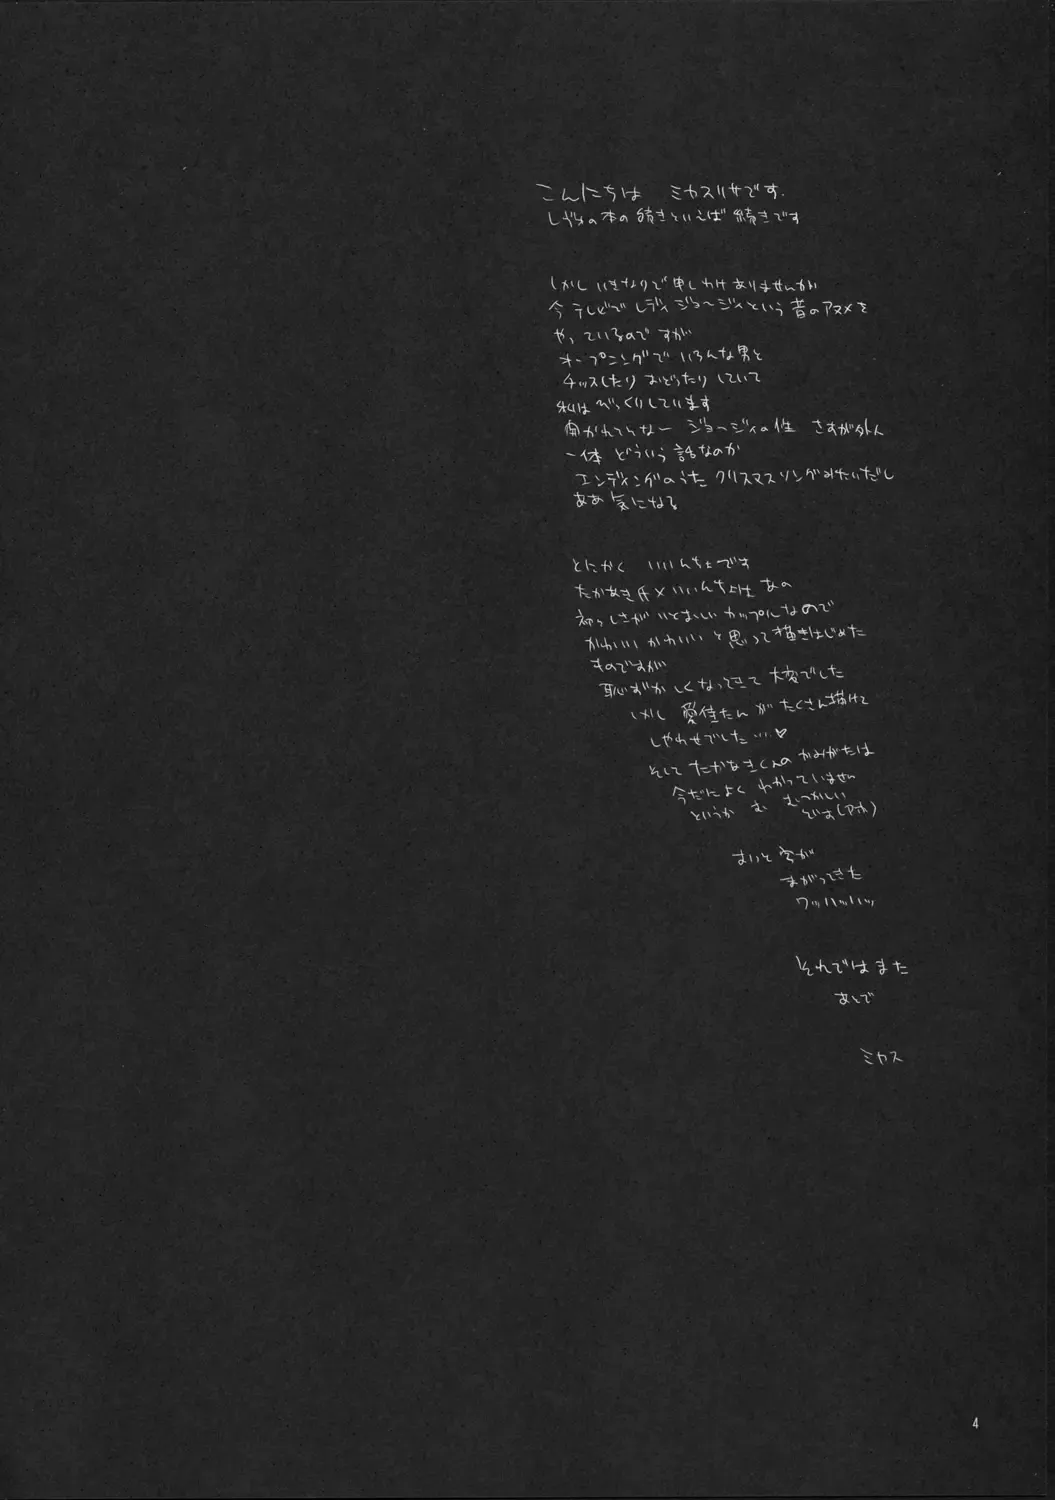 こんにちは ミカスリサです.
の本の続きといえば 続きです
しかし いきなりで 申しわけありませんが
今 テレビで レディ ジョージィという 昔のアニメを
やっているのですが
オープニングで いろんな男と
チッスしたり おどったり していて
私は びっくりしています
ジョージィの性 さすが外人
一体 どういう 話なのか
エンディングのうた クリスマスソングみたいだし
ああ 気になる
とにかく いいんちょです
たかあき氏×いいんちょは あの
初々しさが いとおしい カップルなので
かわいい かわいい と思って描きはじめた
ものですが
恥ずかしくなってきて 大変でした
しかし 愛佳たんが たくさん描けて
しやわせでした…♥
そして たかあきくんの かみがたは
今だによく わかっていません
というか む むつかしい
です(アホ)
字が
まがってきた
ワッハッハッ
それでは また
あとで
ミカス
4